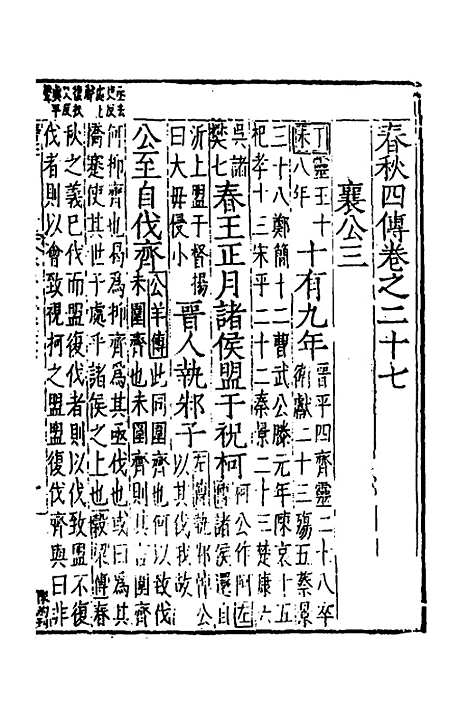 春秋四傳卷之二十七
襄公三
丁未
靈王十
八年
十有九年
晉平四齊靈二十八卒
衛獻二十三殤五蔡景
三十八鄭簡十二曹武公滕元年陳哀十五
杞孝十三宋平二十二秦景二十三楚康六
吳諸
樊七
春王正月諸侯盟于祝柯
柯公作阿左
傳諸侯還自
沂上盟于督揚
曰大毋侵小
晉人執邾子
左傳執邾悼公
以其伐我故
公至自伐齊
公羊傳此同圍齊也何以致伐
未圍齊也未圍齊則其言圍齊
何抑齊也曷為抑齊為其亟伐也或曰為其
驕蹇使其世子處乎諸侯之上也穀梁傳春
秋之義已伐而盟復伐者則以伐致盟不復
伐者則以會致祝柯之盟盟復伐齊與曰非